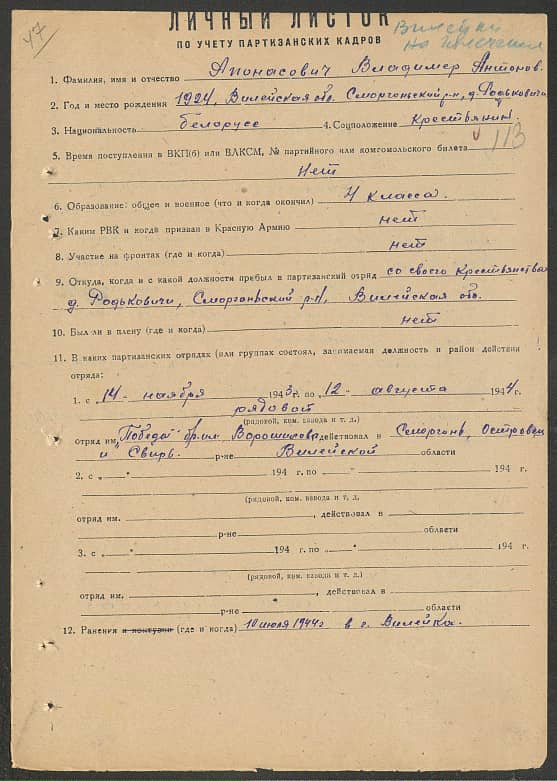 47
ЛИЧНЫЙ ЛИСТОК
ПО УЧЕТУ ПАРТИЗАНСКИХ КАДРОВ
1. Фамилия, имя и отчество Апонасович Владимер Антонов.
2. Год и место рождения 1924, Вилейская об. Сморгоньский р-н, д. Родьковичи
3. Национальность белорусс 4. Соцположение Крестьянин.
113
5. Время поступления в ВКП(б) или ВЛКСМ, № партийного или комсомольского билета
Нет
6. Образование: общее и военное (что и когда окончил) 4 класса.
7. Каким РВК и когда призван в Красную Армию нет
8. Участие на фронтах (где и когда) нет
9. Откуда, когда и с какой должности прибыл в партизанский отряд со своего Крестьянства
д. Родьковичи, Сморгоньский р-н, Вилейская об.
10. Был ли в плену (где и когда) нет
11. В каких партизанских отрядах (или группах состоял, занимаемая должность и район действия
отряда:
1. с 14 - ноября 1943 г. по 12 - августа 1944 г.
рядовой
(рядовой, ком. взвода и т. д.)
отряд им. "Победа" бр. им. Ворошилова действовал в Сморгонь, Островец
и Свирь. р-не Вилейской области
2. с „ " 194 г. по „ " 194 г.
(рядовой, ком. взвода и т. д.
отряд им. , действовал в
р-не области
3. с „ " 194 г. по „ " 194 г.
(рядовой, ком. взвода и т. д.)
отряд им. , действовал в
р-не области
12. Ранения и контузии (где и когда) 10 июля 1944 г в г. Вилейка.